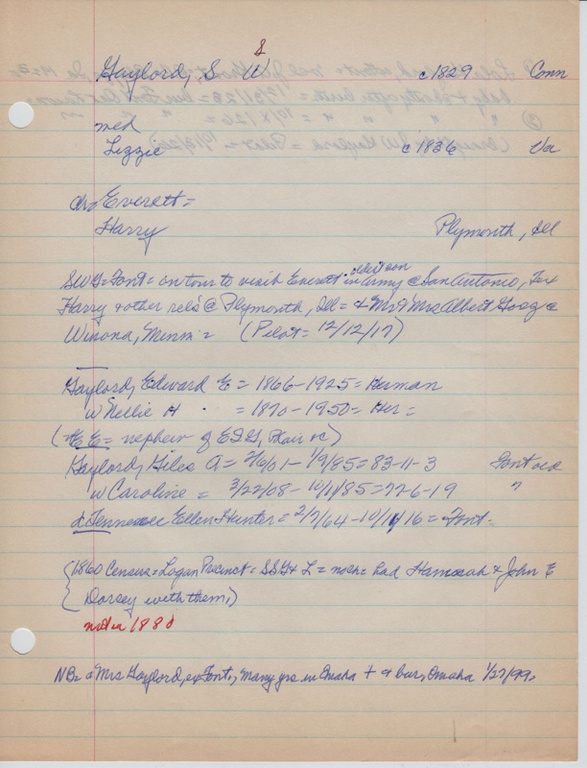 S
Gaylord, S W c1829 Conn
med
Lizzie c1836 Va
ch= Everett=
Harry Plymouth, Ill
oldest son
SWG=Font= on tour to visit Everett in army @ San Antonio, Tex
Harry & other rels @ Plymouth, Ill= & Mr & Mrs Albert
Winona, Minn= (Pilot= 12/12/17)
Gaylord, Edward E= 1866-1925= Herman
w Nellie H = 1870-1950= Her=
(EE= nephew of EGG, Blair &c)
Gaylord, Giles A= 2/6/01- 1/9/85=83-11-3 Font cem
w Caroline = 3/22/08-10/11/85=77-6-19 "
d Tennessee Ellen Hunter= 2/7/64-10/11/16= Font=
{1860 Census= Logan Precinct= SSG & L= noch= had Hannah & John E
{Dorsey with them)
not in 1880
NB= a Mrs Gaylord, ex Font., many yrs in Omaha + & bur, Omaha 1/27/99.